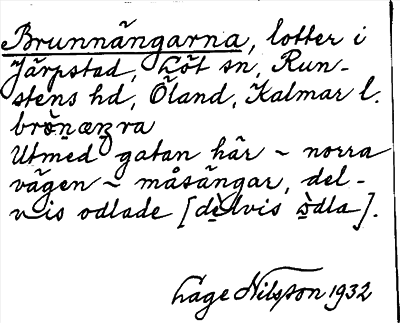 Brunnängarna, lotter i
Järpstad, Löt sn, Run-
stens hd, Öland, Kalmar l.
Utmed gatan här ~ norra
vägen ~ måsängar, del-
vis odlade [dèlvis òdla].
Lage Nilsson 1932